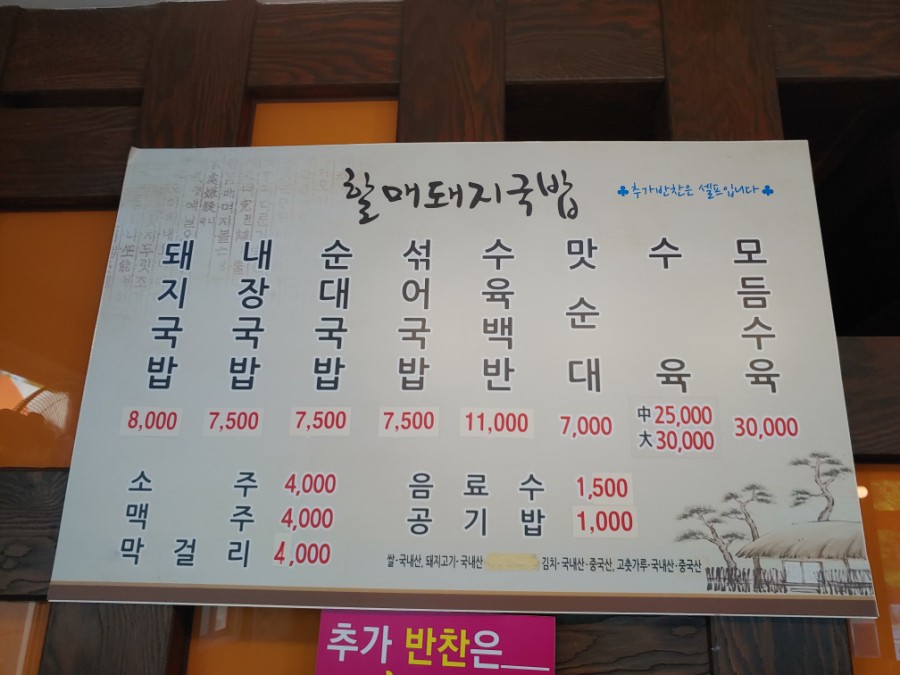 할매돼지국밥
♣추가반찬은 셀프입니다♣
돼지국밥 8,000
내장국밥 7,500
순대국밥 7,500
섞어국밥 7,500
수육백반 11,000
맛순대 7,000
수육 中25,000 大30,000
모듬수육 30,000
소주 4,000
맥주 4,000
막걸리 4,000
음료수 1,500
공기밥 1,000
쌀·국내산, 돼지고기·국내산 김치·국내산·중국산, 고춧가루·국내산·중국산
추가 반찬은